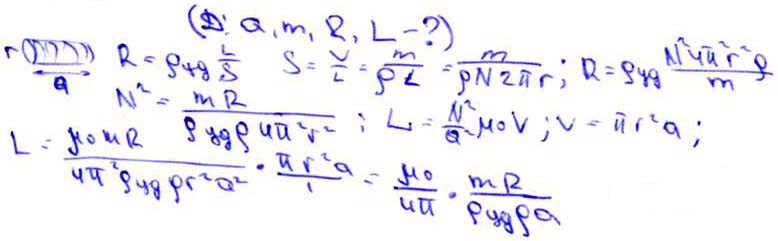 (D: a, m, R, L - ?)
r a R = ρуд L/S S = V/L = m/(ρ L) = m/(ρN2πr); R = ρуд N²4π²r²ρ/m
N² = mR/(ρудρ4π²r²); L = N²/a² μ₀V; V = πr²a;
L = μ₀mR/(4π²ρудρr²a²) · πr²a/1 = μ₀/4π · mR/(ρудρa)